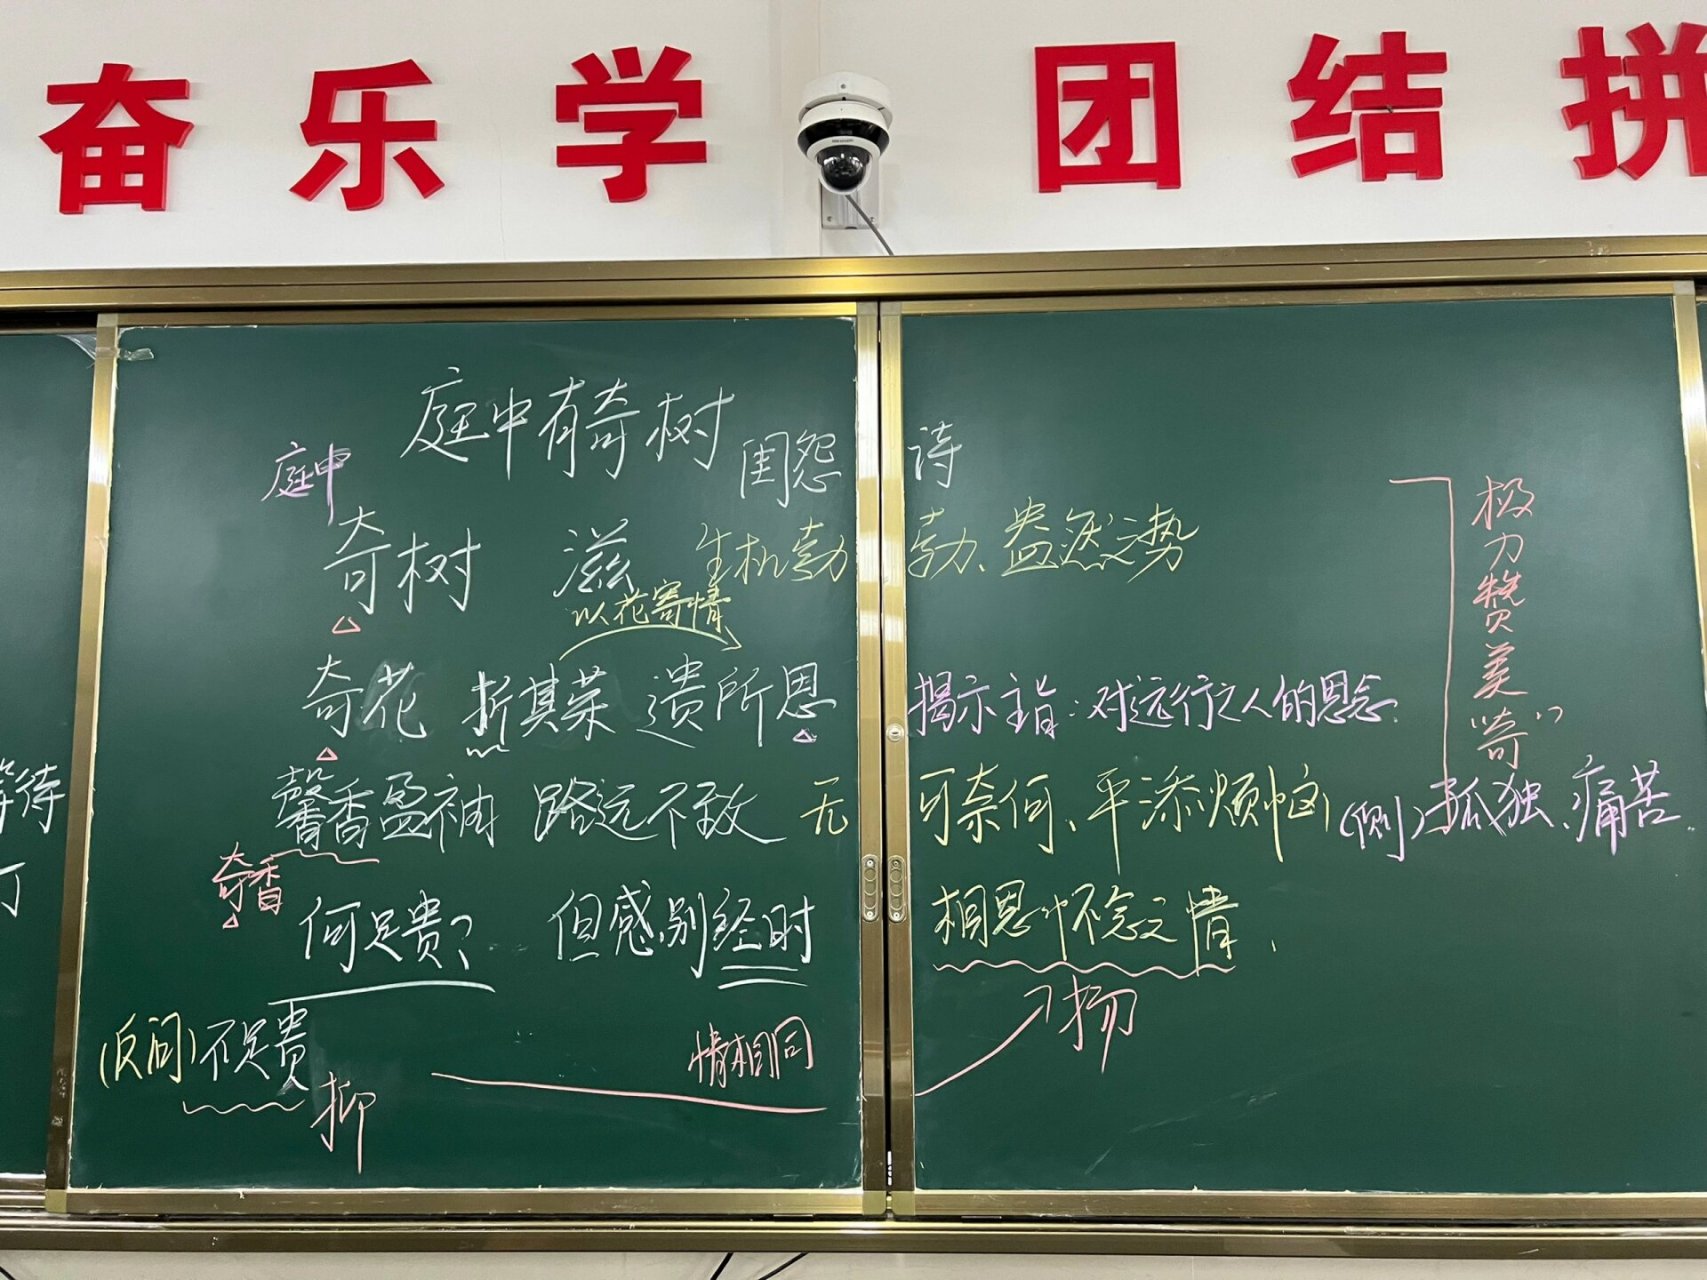 奋乐学 团结拼
庭中有奇树
闺怨诗
庭中
奇树 滋 生机勃勃、盎然之势
以花寄情
奇花 折其荣 遗所思 揭示主旨:对远行之人的思念.
馨香盈袖 路远不致 无可奈何、平添烦恼 (侧)孤独、痛苦
奇香
何足贵? 但感别经时 相思怀念之情.
(反问)不足贵
抑
情相同
扬
极力赞美“奇”
等待